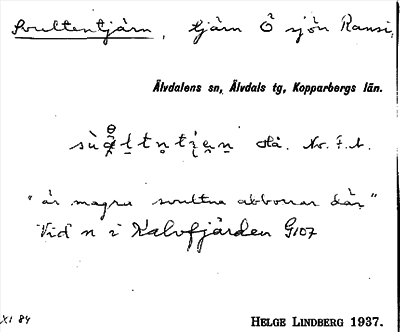 Svultentjärn, tjärn Ö sjön Ransi,
Älvdalens sn, Älvdals tg, Kopparbergs län.
Hå. Nr. F.A.
"är magra svultna abborrar där"
Vid n i Kalvfjärden G107
XI 84
HELGE LINDBERG 1937.